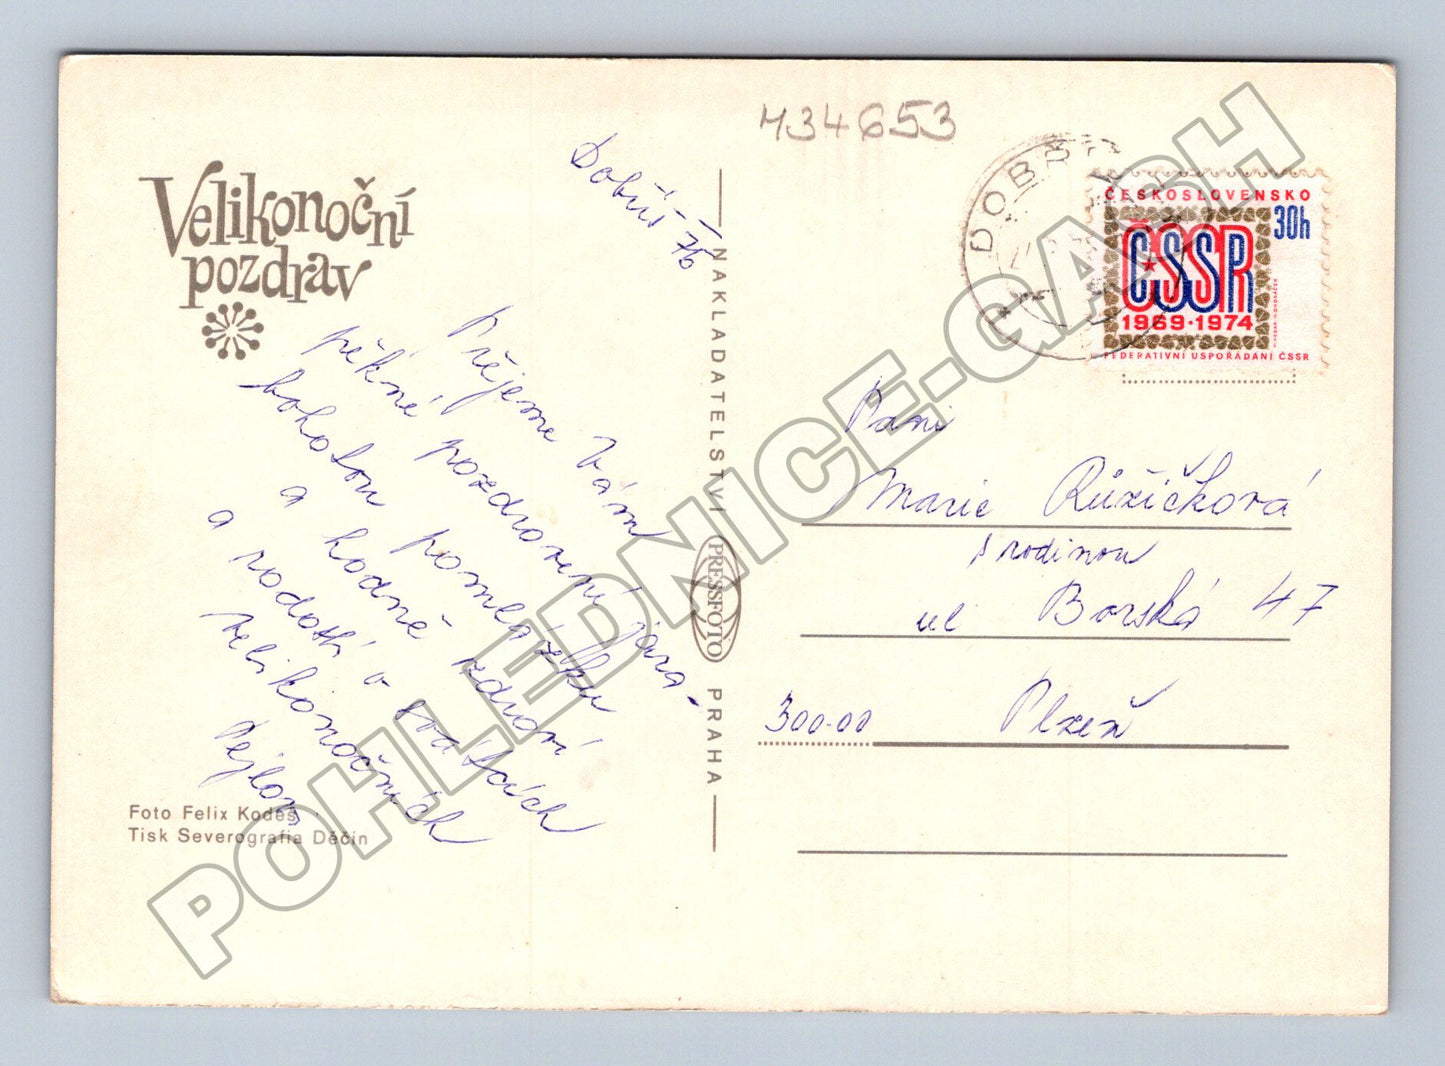 434653
Velikonoční
pozdrav
Dobříš - 76
Přejeme Vám
pěkné pozdravení jara -
bohatou pomlázku
a hodně zdraví
a radosti o svátcích
velikonočních
Foto Felix Kodeš
Tisk Severografia Děčín
NAKLADATELSTVÍ PRESSFOTO PRAHA
DOBŘ
ČESKOSLOVENSKO
30h
ČSSR
1969·1974
FEDERATIVNÍ USPOŘÁDÁNÍ ČSSR
Paní
Marie Růžičková
s rodinou
ul Borská 47
300-00 Plzeň
POHLEDNICE-GASH